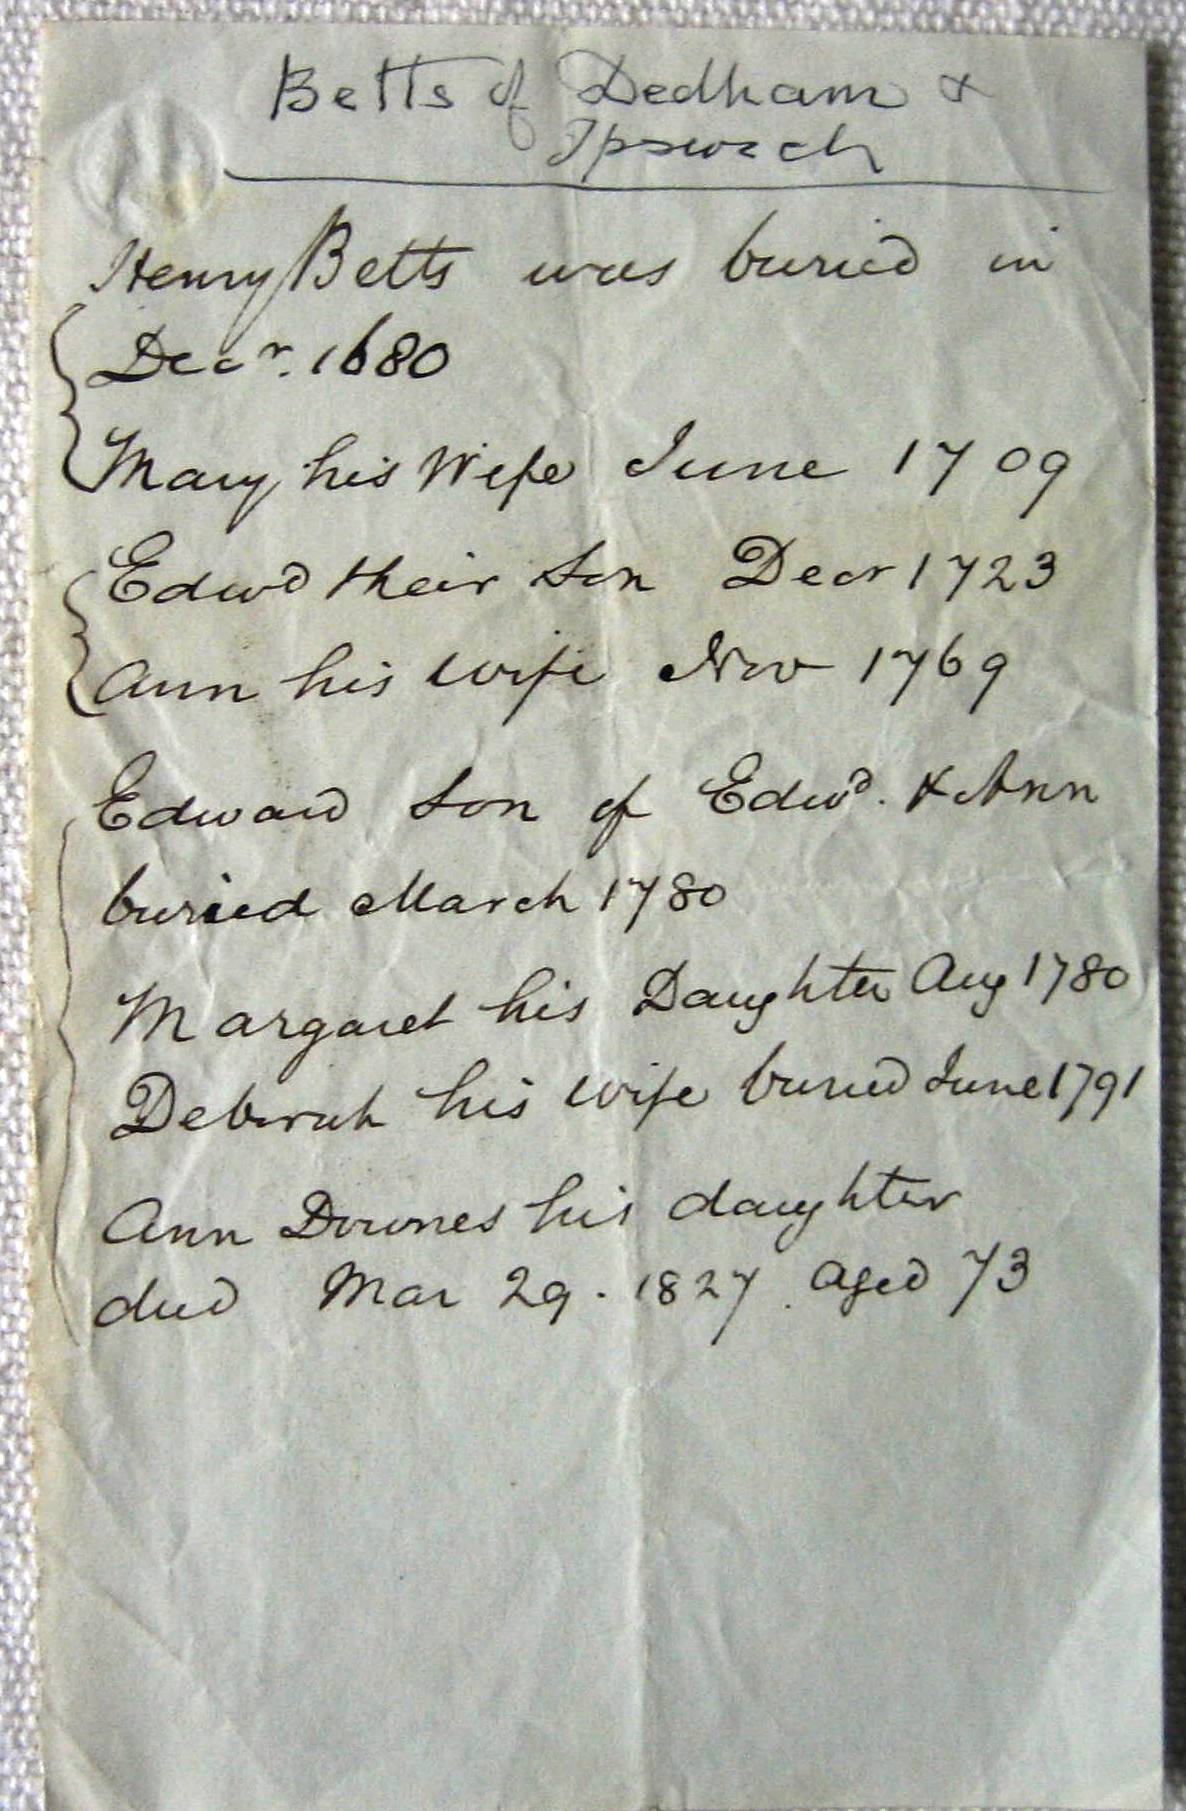 Betts of Dedham &
Ipswich
Henry Betts was buried in
Decr. 1680
Mary his Wife June 1709
Edwd their Son Decr 1723
Ann his wife Nov 1769
Edward Son of Edwd. & Ann
buried March 1780
Margaret his Daughter Aug 1780
Deborah his wife buried June 1791
Ann Downes his daughter
died Mar 29. 1827. aged 73